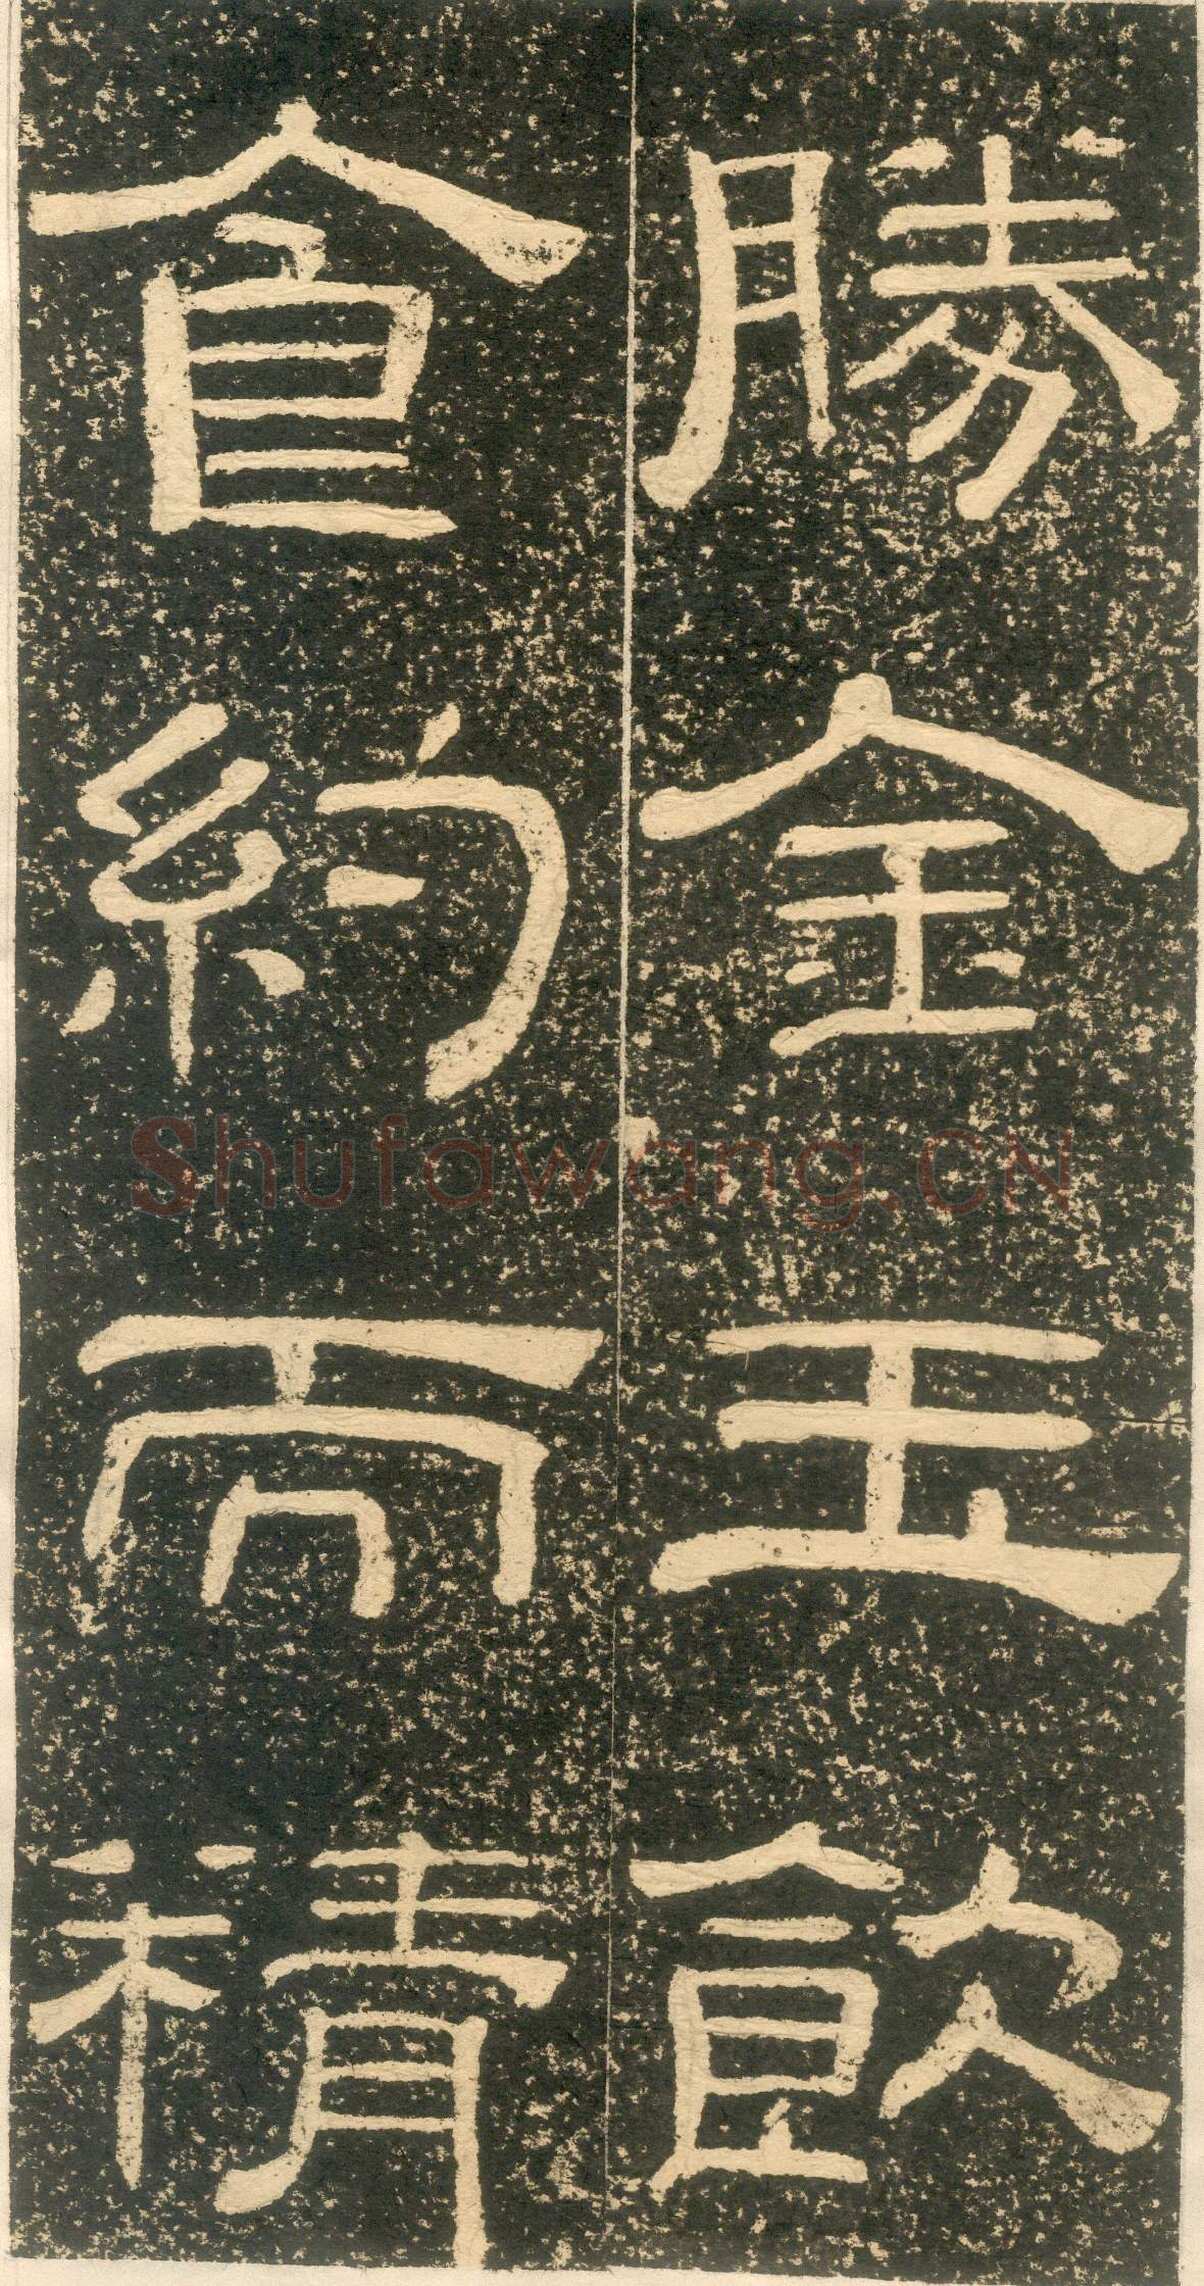 勝金玉飲
食約而精
Shufawang.CN